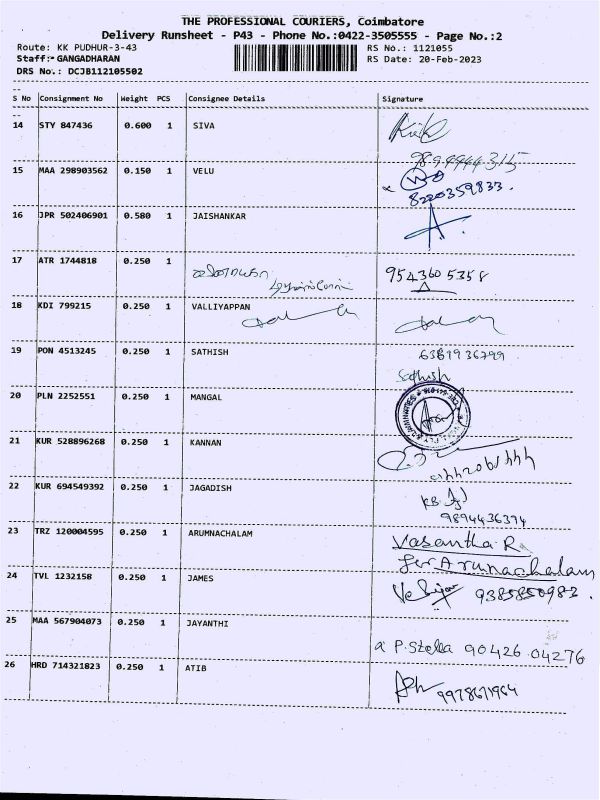 THE PROFESSIONAL COURIERS, Coimbatore
Delivery Runsheet - P43 - Phone No.:0422-3505555 - Page No.:2
Route: KK PUDHUR-3-43 RS No.: 1121055
Staff: GANGADHARAN RS Date: 20-Feb-2023
DRS No.: DCJB112105502
S No Consignment No Weight PCS Consignee Details Signature
14 STY 847436 0.600 1 SIVA
15 MAA 298903562 0.150 1 VELU
8220359833.
16 JPR 502406901 0.580 1 JAISHANKAR
17 ATR 1744818 0.250 1
9543605358
18 KDI 799215 0.250 1 VALLIYAPPAN
19 PON 4513245 0.250 1 SATHISH 6381936799
Sathish
20 PLN 2252551 0.250 1 MANGAL
21 KUR 528896268 0.250 1 KANNAN
22 KUR 694549392 0.250 1 JAGADISH
9894436374
23 TRZ 120004595 0.250 1 ARUMNACHALAM Vasantha R
for Arunachalam
24 TVL 1232158 0.250 1 JAMES 9385850982.
25 MAA 567904073 0.250 1 JAYANTHI
P. Stella 90426 04276
26 HRD 714321823 0.250 1 ATIB
9978671964